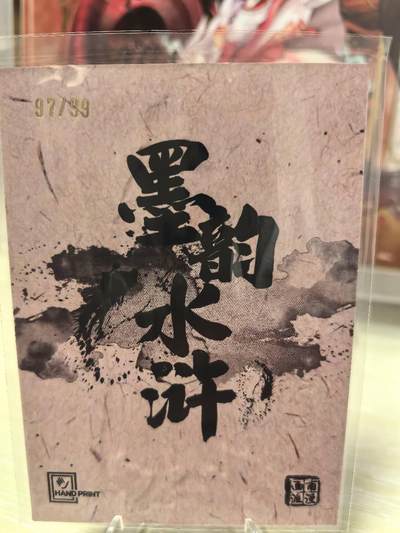 97/99
墨韵
水浒
HAND PRINT